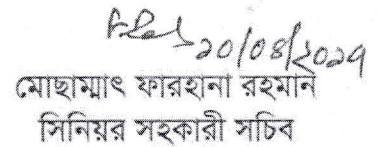 ২০/০৪/২০২৭
মোছাম্মাৎ ফারহানা রহমান
সিনিয়র সহকারী সচিব